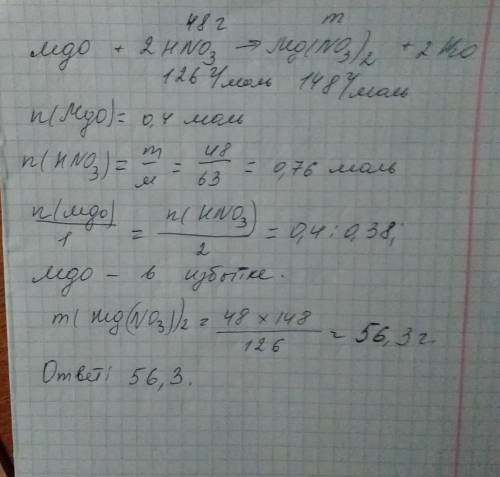 48 г m
MgO + 2HNO₃ → Mg(NO₃)₂ + 2H₂O
126 г/моль 148 г/моль
n(MgO) = 0,4 моль
n(HNO₃) = m/м = 48/63 = 0,76 моль
n(MgO)/1 = n(HNO₃)/2 = 0,4 : 0,38;
MgO – в избытке.
m(Mg(NO₃)₂ = 48 × 148/126 = 56,3 г.
Ответ: 56,3.